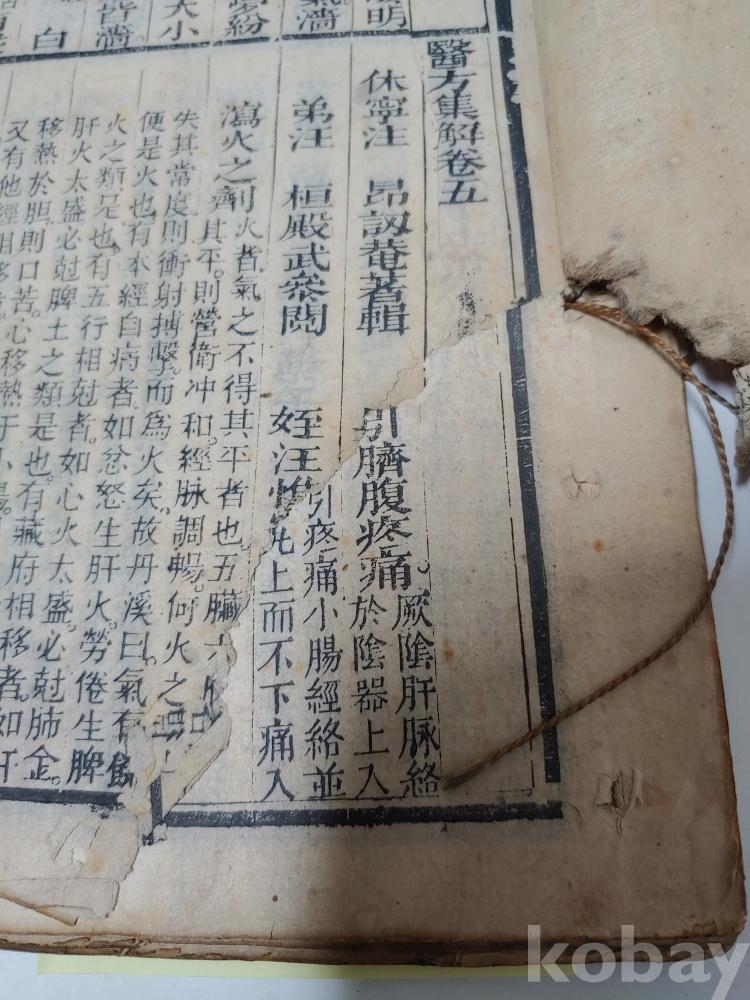 明
氣濇
夢紛
大小
皆濇。
白
醫方集解卷五
休寧汪 昂訒菴著輯
弟汪 桓殿武叅閱
姪汪惟
引臍腹疼痛。厥陰肝脉絡
於陰器上入
引疼痛小腸經絡並
上而不下痛入
瀉火之劑火者氣之不得其平者也五臟六
其平。則營衛冲和。經脉調暢。何火之
失其常度則衝射搏擊。而爲火矣故丹溪曰。氣有餘
便是火也有本經自病者如忿怒生肝火。勞倦生脾
火之類是也有五行相尅者。如心火太盛。必尅肺金。
肝火太盛必尅脾土之類是也。有藏府相移者。如肝
移熱於胆。則口苦。心移熱于小腸。
又有他經相移者。
kobay